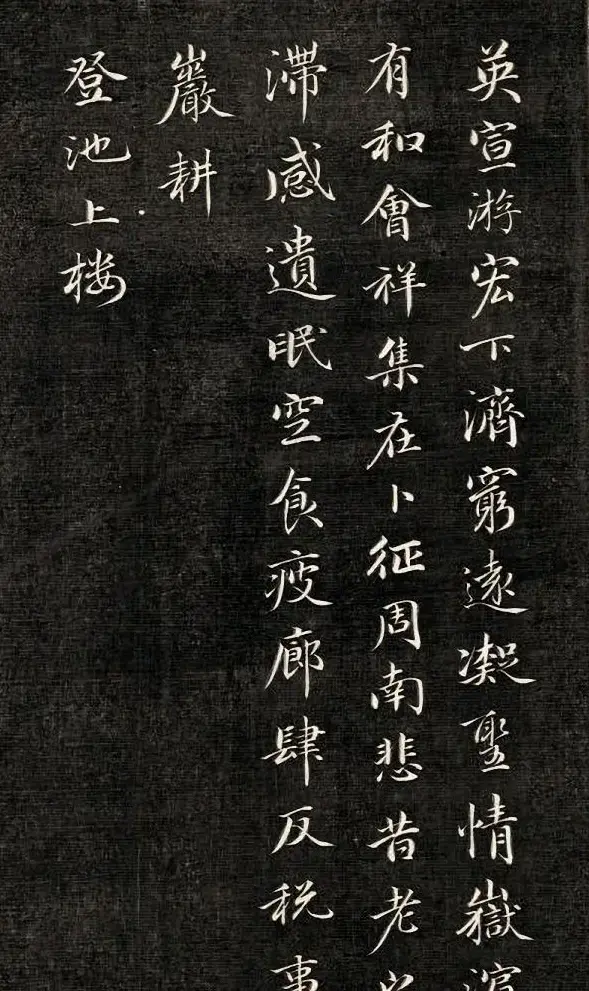 英宣游宏下濟窮遠凝聖情嶽
有和會祥集在卜征周南悲昔老
滯感遺眠空食疲廊肆反税事
巖耕
登池上楼